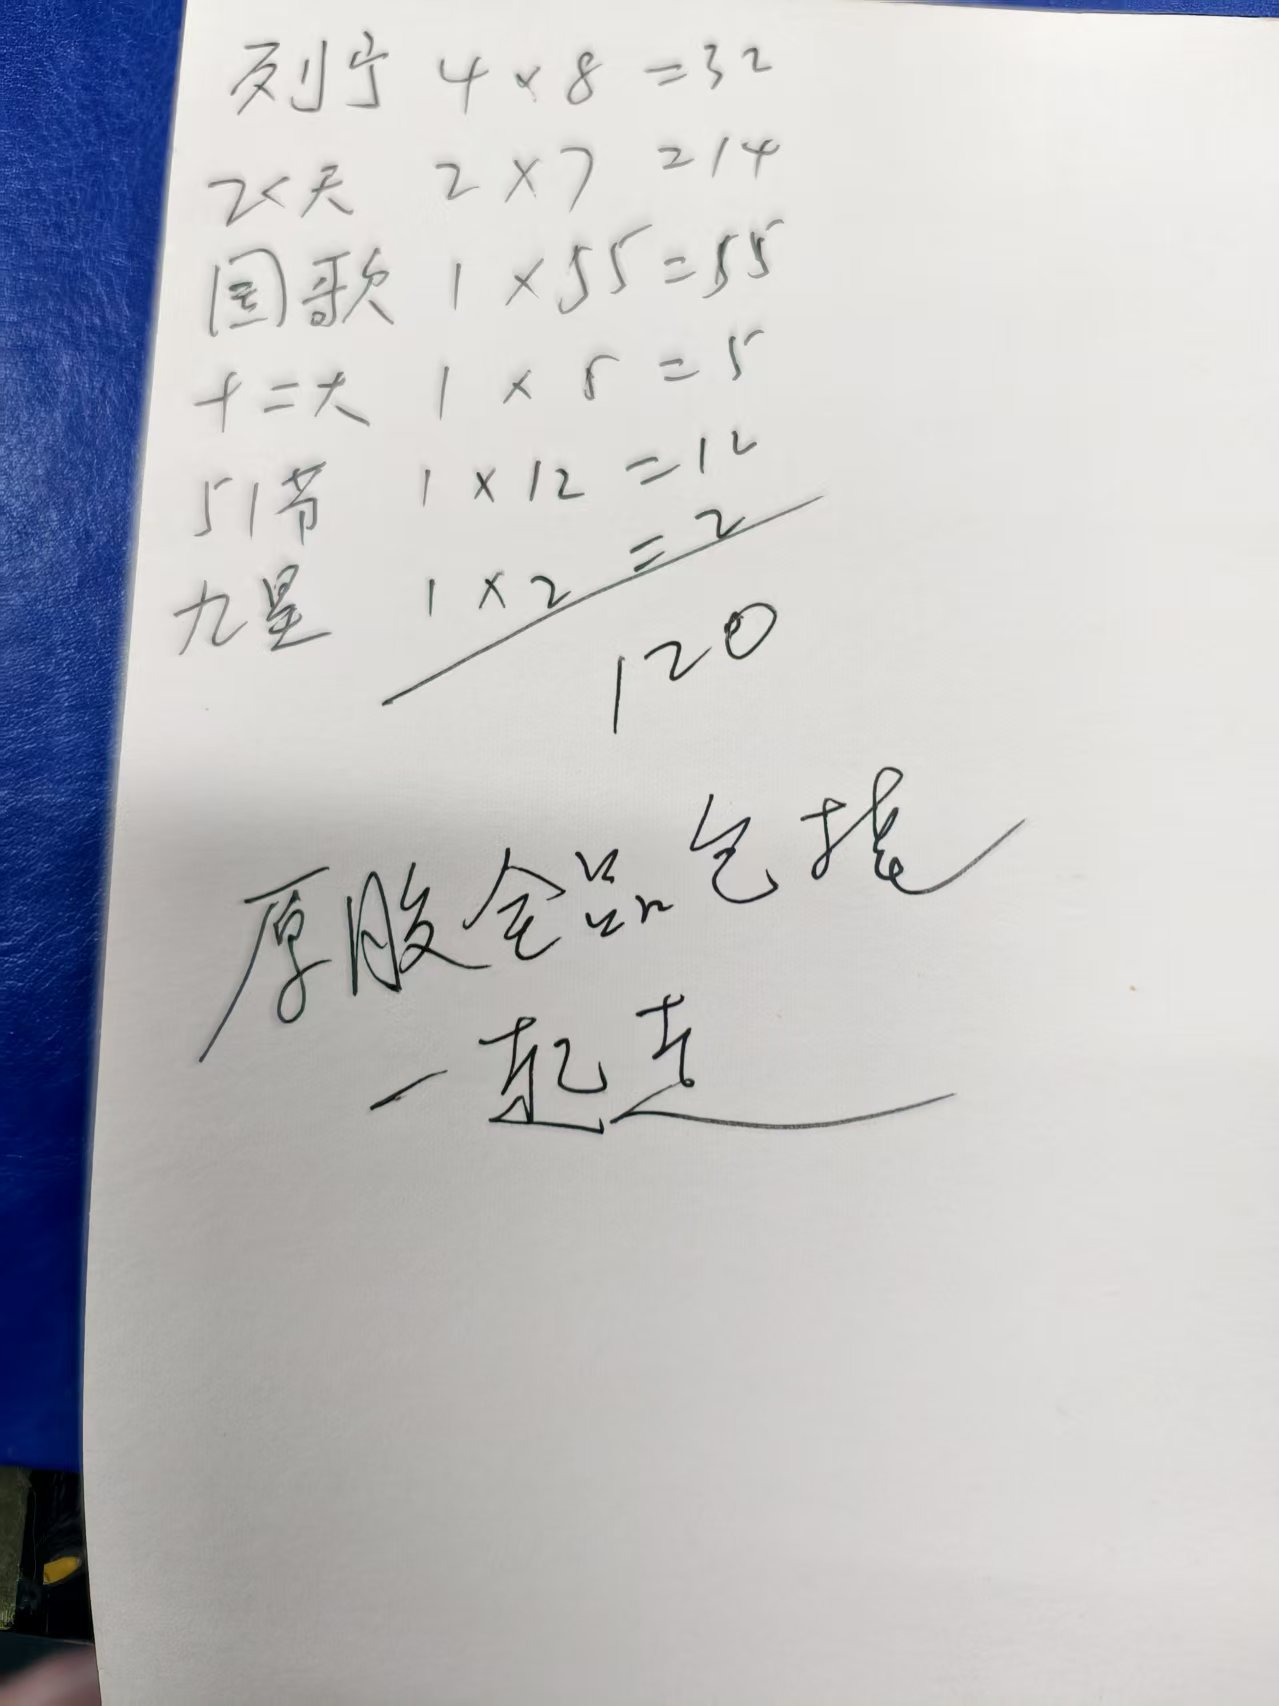 列宁 4×8=32
天 2×7=14
国歌 1×55=55
十二大 1×5=5
51节 1×12=12
九星 1×2=2
120
厚胶全品包挂
一起走